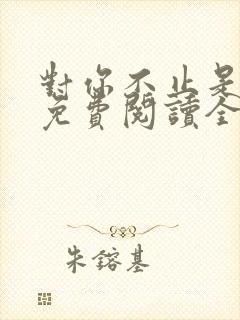 對你不止是
免費閱讀全
朱鎔基